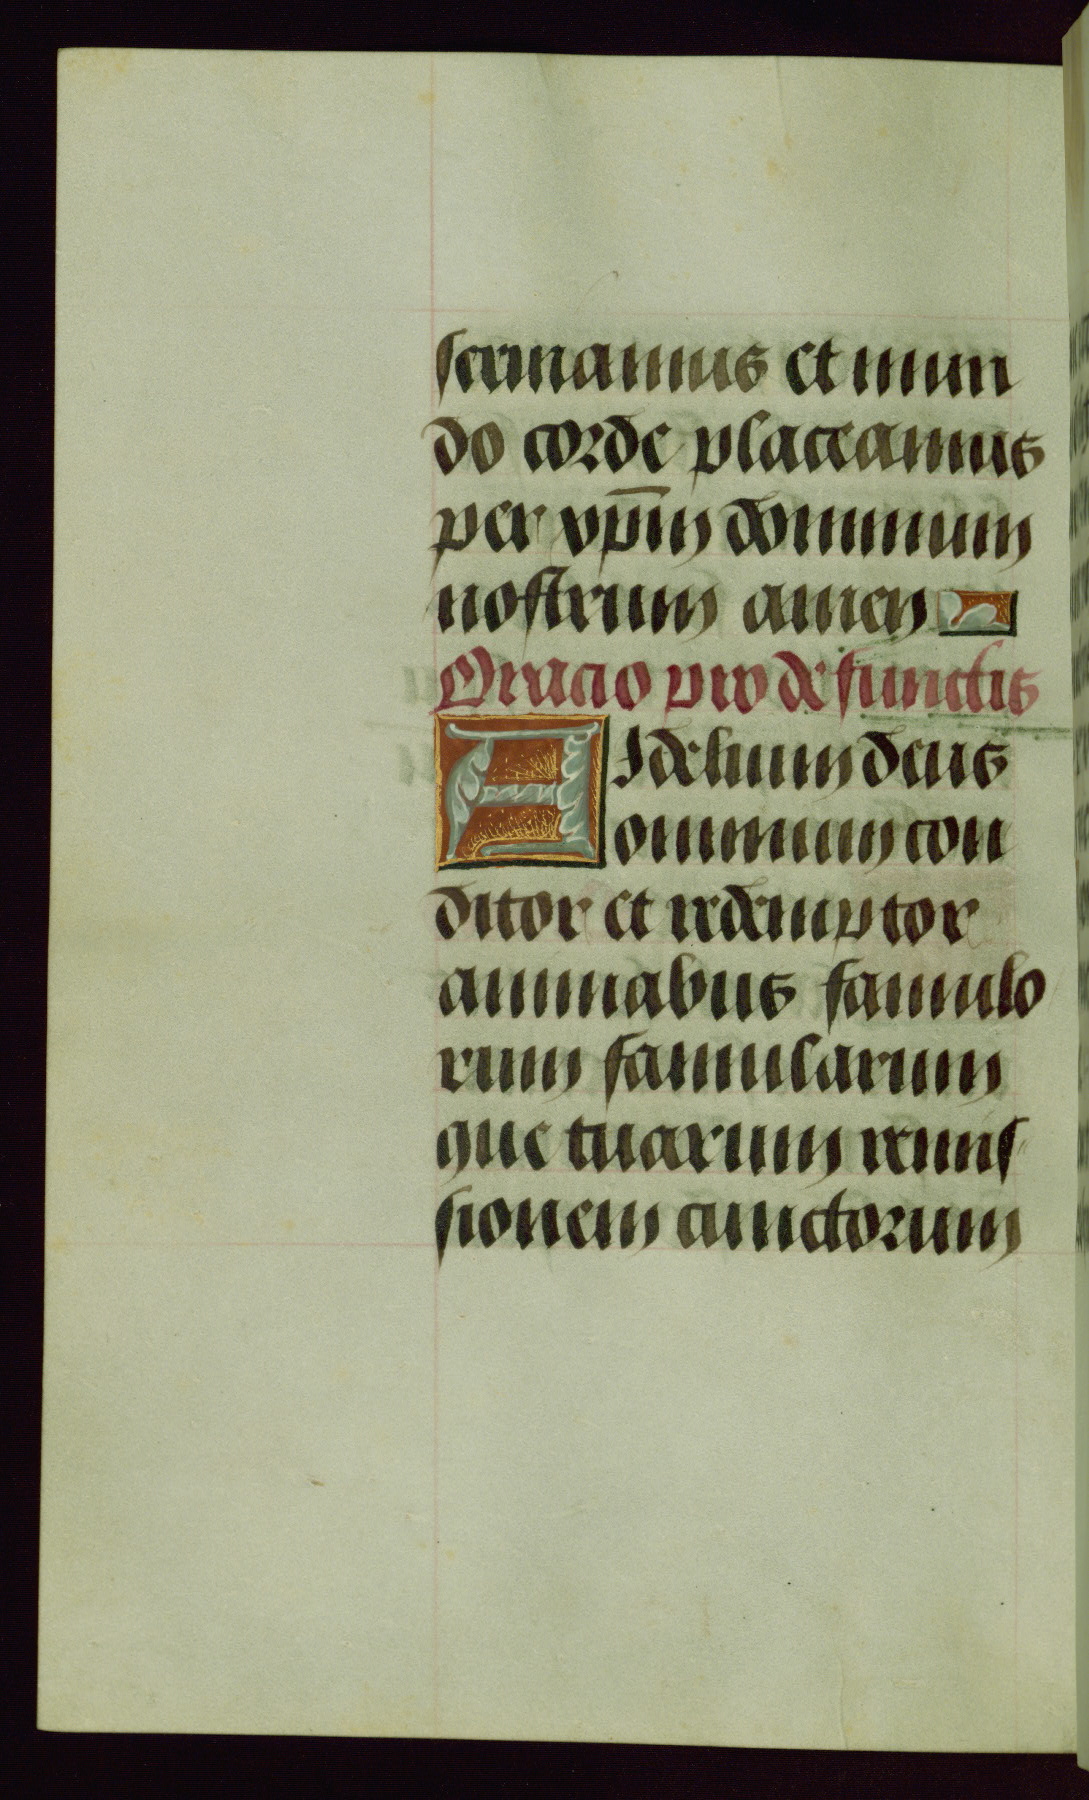 seruiamus et mun
do corde placeamus
per xp̄m dominum
nostrum amen
Oracio pro defunctis
AIdelium deus
omnium con
ditor et redemptor
animabus famulo
rum famularum
que tuarum remis
sionem cunctorum